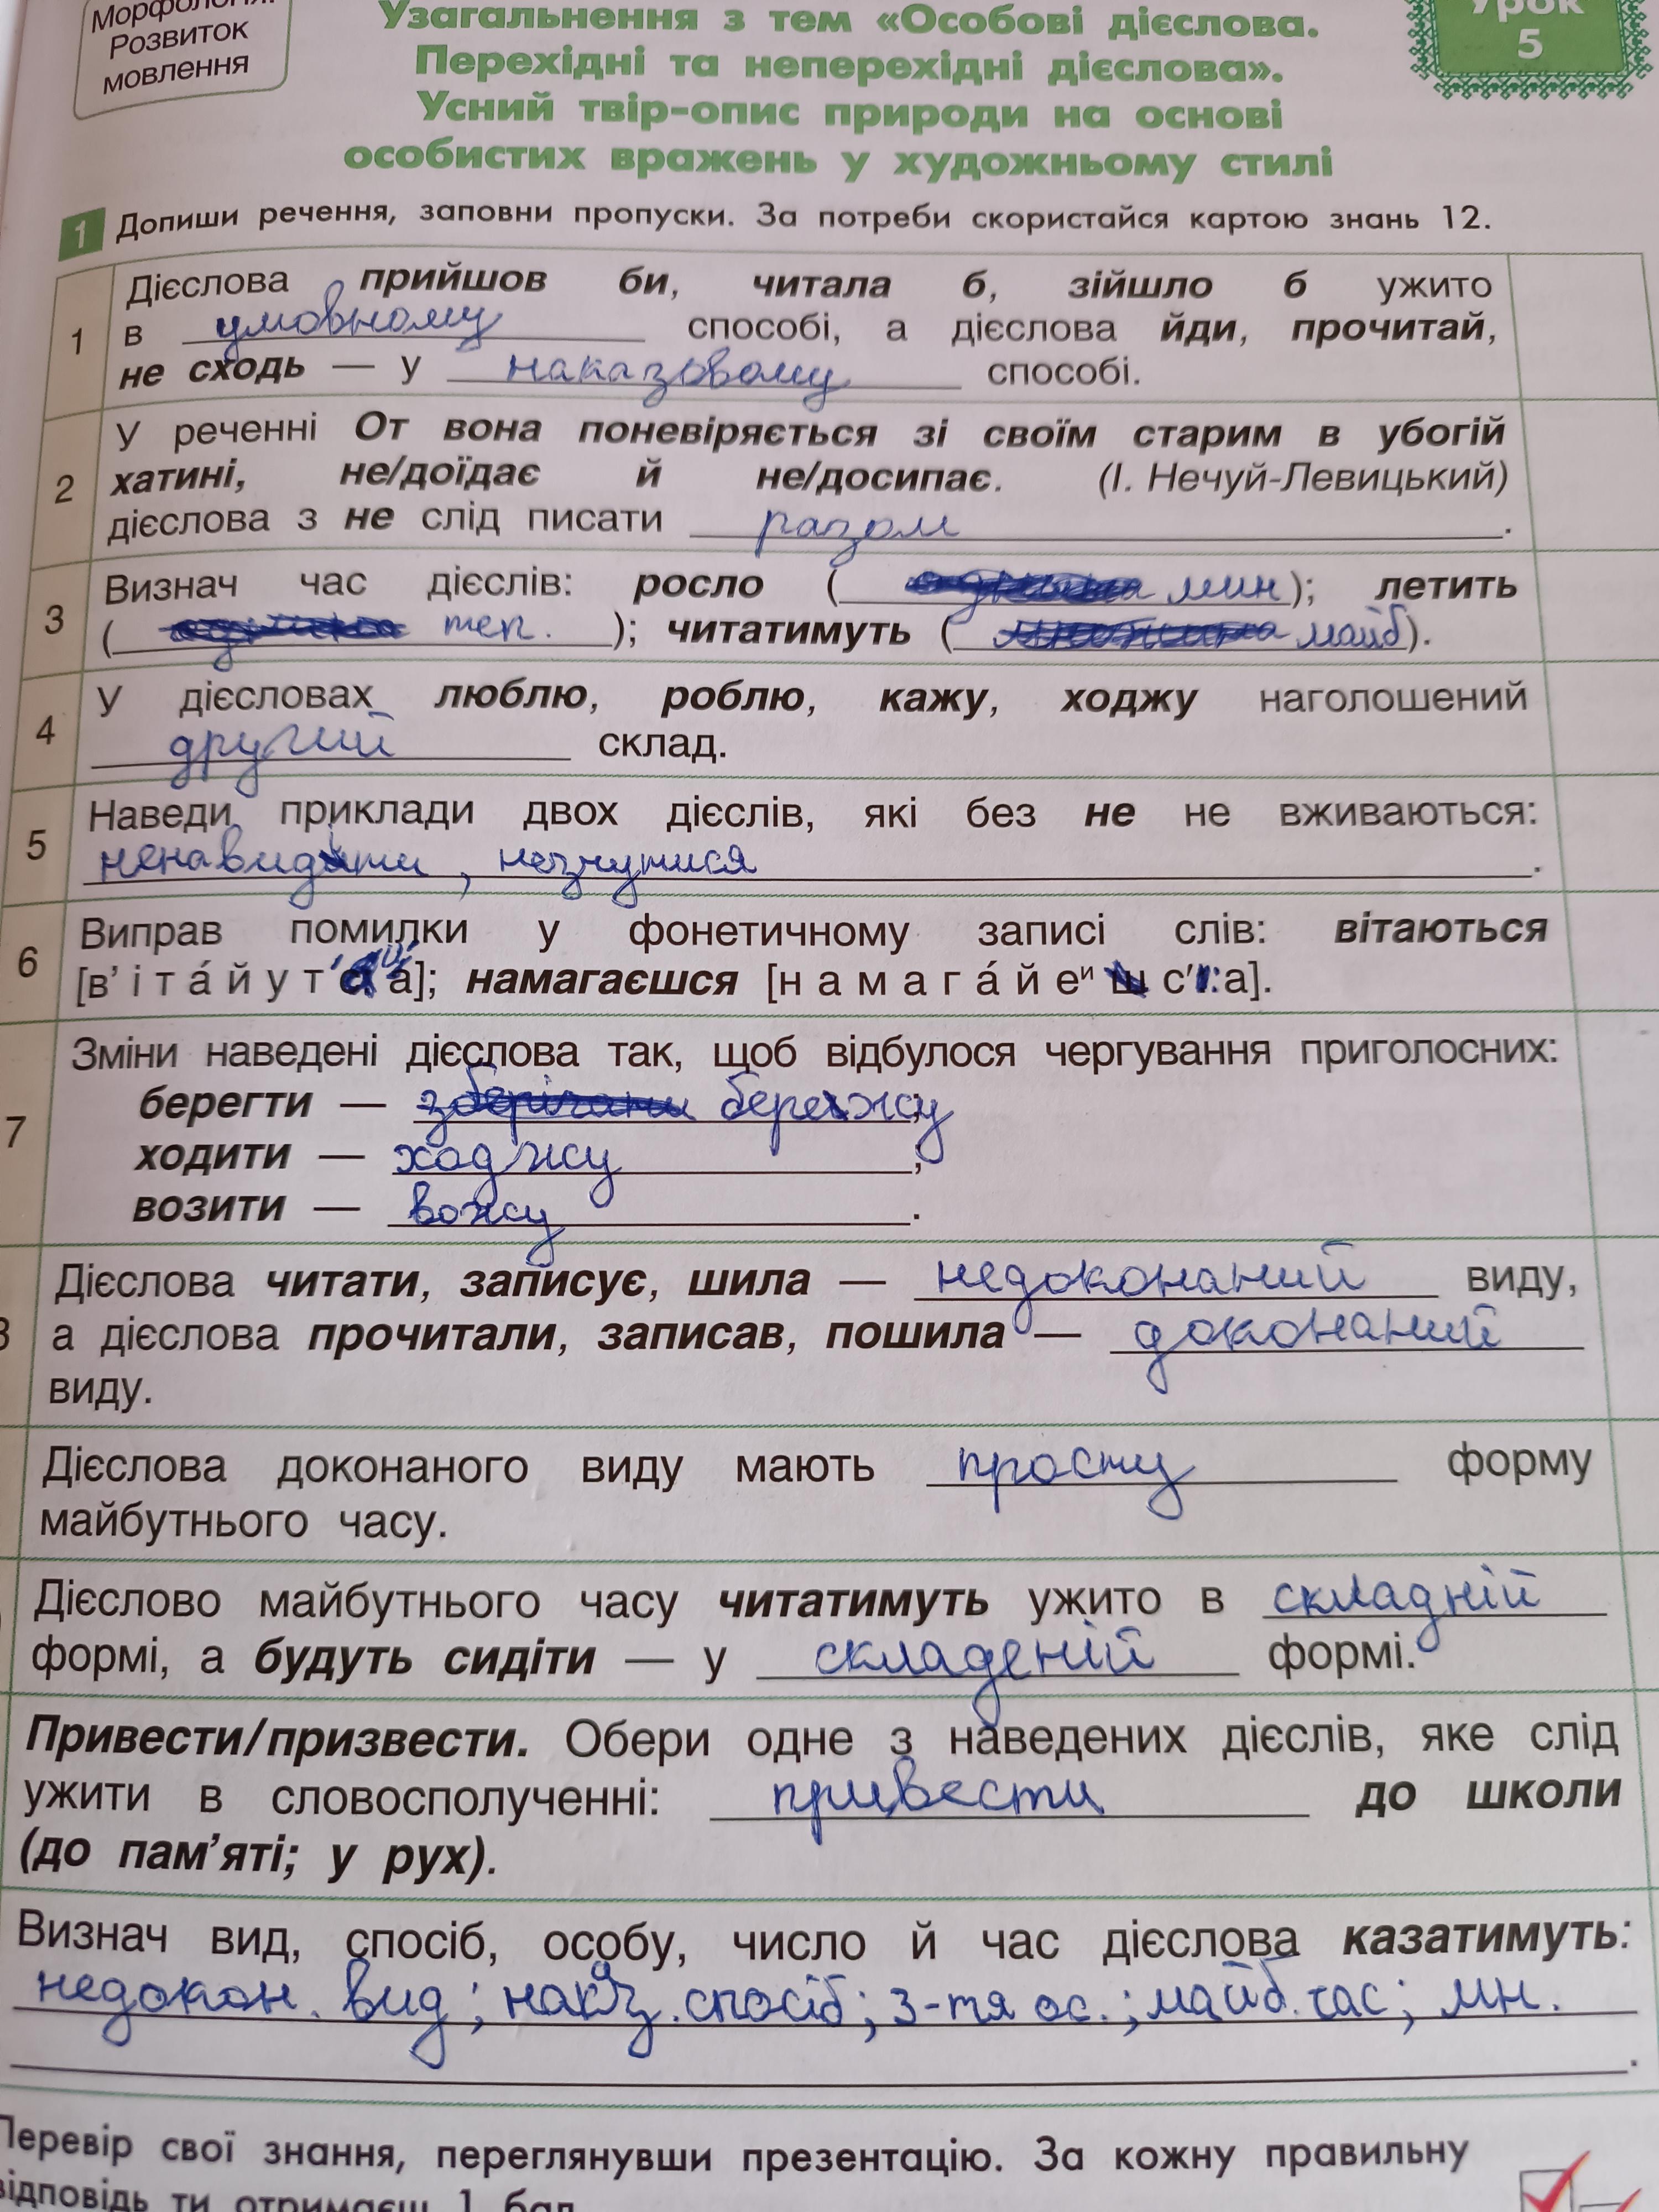 Морфологія.
Розвиток
мовлення
Узагальнення з тем «Особові дієслова.
Перехідні та неперехідні дієслова».
Усний твір-опис природи на основі
особистих вражень у художньому стилі
Урок
5
1 Допиши речення, заповни пропуски. За потреби скористайся картою знань 12.
1 Дієслова прийшов би, читала б, зійшло б ужито
в умовному способі, а дієслова йди, прочитай,
не сходь — у наказовому способі.
2 У реченні От вона поневіряється зі своїм старим в убогій
хатині, не/доїдає й не/досипає. (І. Нечуй-Левицький)
дієслова з не слід писати разом.
3 Визнач час дієслів: росло (мин); летить
(теп.); читатимуть (майб).
4 У дієсловах люблю, роблю, кажу, ходжу наголошений
другий склад.
5 Наведи приклади двох дієслів, які без не не вживаються:
ненавидіти, незчутися.
6 Виправ помилки у фонетичному записі слів: вітаються
[в’ і т а́ й у т а]; намагаєшся [н а м а г а́ й еи с′: а].
7 Зміни наведені дієслова так, щоб відбулося чергування приголосних:
берегти — бережу;
ходити — ходжу,
возити — вожу.
Дієслова читати, записує, шила — недоконаний виду,
а дієслова прочитали, записав, пошила — доконаний
виду.
Дієслова доконаного виду мають просту форму
майбутнього часу.
Дієслово майбутнього часу читатимуть ужито в складній
формі, а будуть сидіти — у складеній формі.
Привести/призвести. Обери одне з наведених дієслів, яке слід
ужити в словосполученні: привести до школи
(до пам’яті; у рух).
Визнач вид, спосіб, особу, число й час дієслова казатимуть:
недокон. вид; наказ. спосіб; 3-тя ос.; майб. час; мн.
.
Перевір свої знання, переглянувши презентацію. За кожну правильну
відповідь ти отримаєш 1 бал.